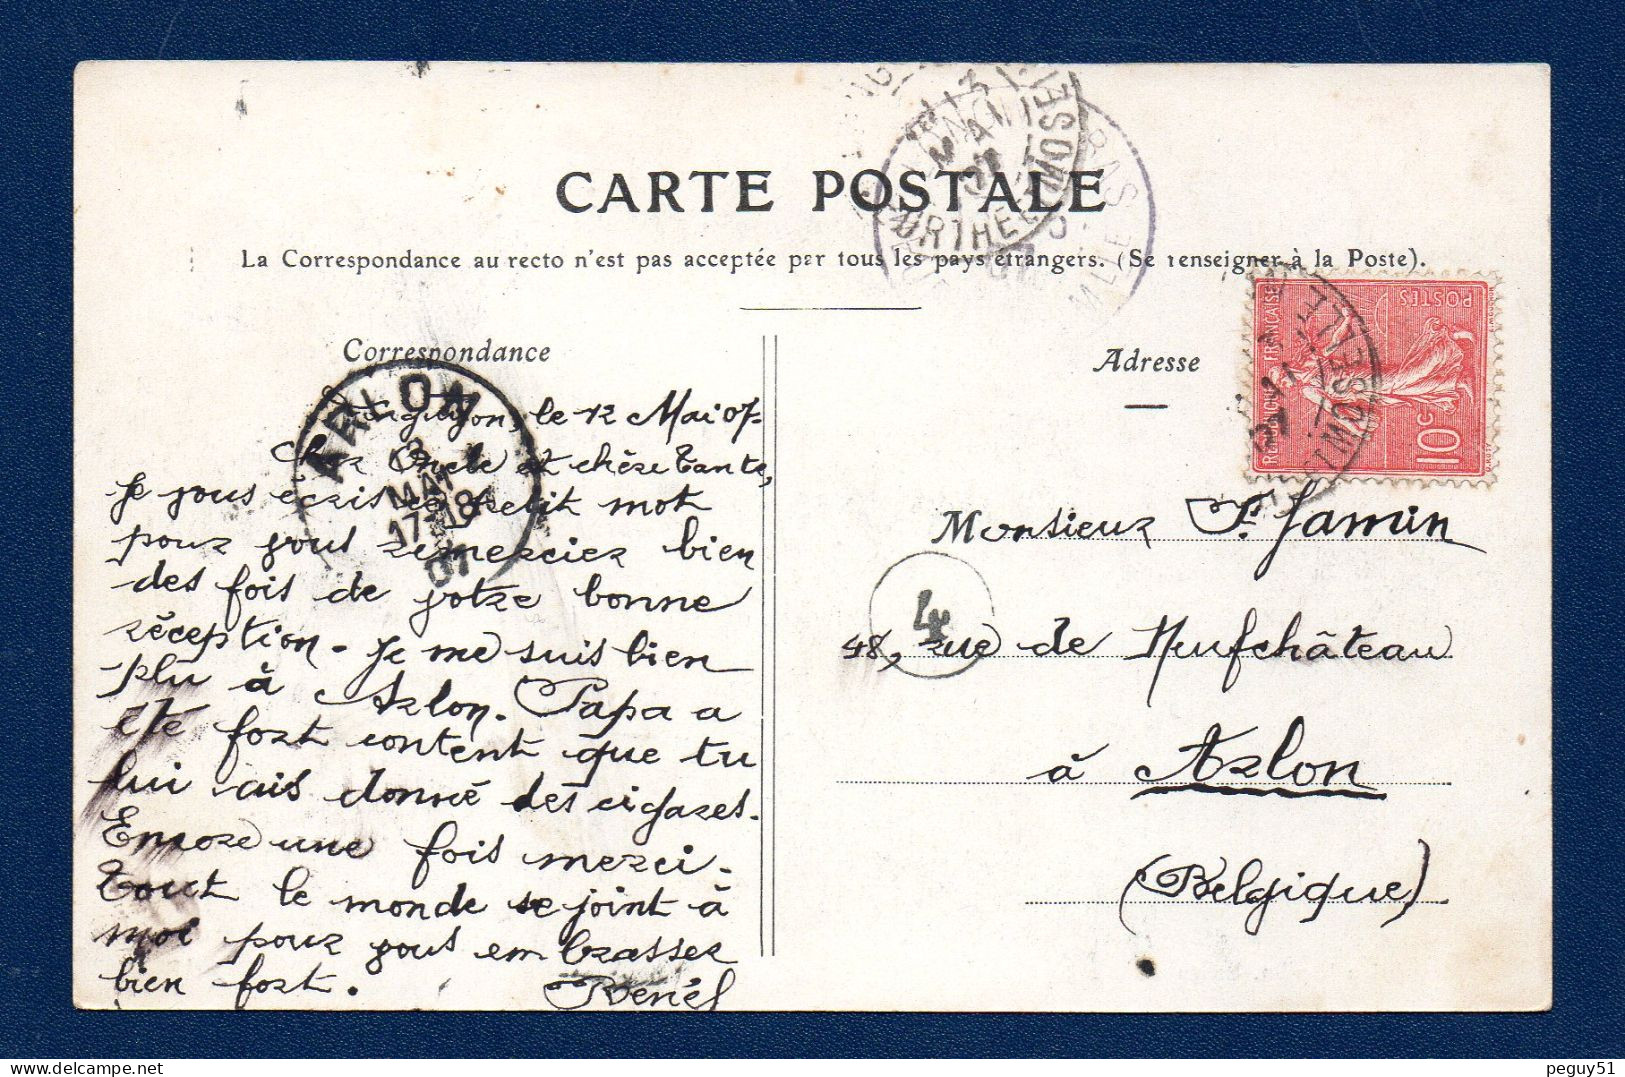 CARTE POSTALE
La Correspondance au recto n'est pas acceptée par tous les pays étrangers. (Se renseigner à la Poste).
Correspondance
Longuyon, le 12 Mai 07-
Cher Oncle et chère Tante,
Je vous écris ce petit mot
pour vous remercier bien
des fois de votre bonne
réception - Je me suis bien
plu à Arlon. Papa a
été fort content que tu
lui ais donné des cigares.
Encore une fois merci -
Tout le monde se joint à
moi pour vous embrasser
bien fort.
ARLON
MAI
17-18
07
Adresse
Monsieur F. Jamin
48, rue de Neufchâteau
à Arlon
(Belgique)
4
REPUBLIQUE FRANÇAISE
POSTES
10c
MOSELLE
MAI
07
peguy51